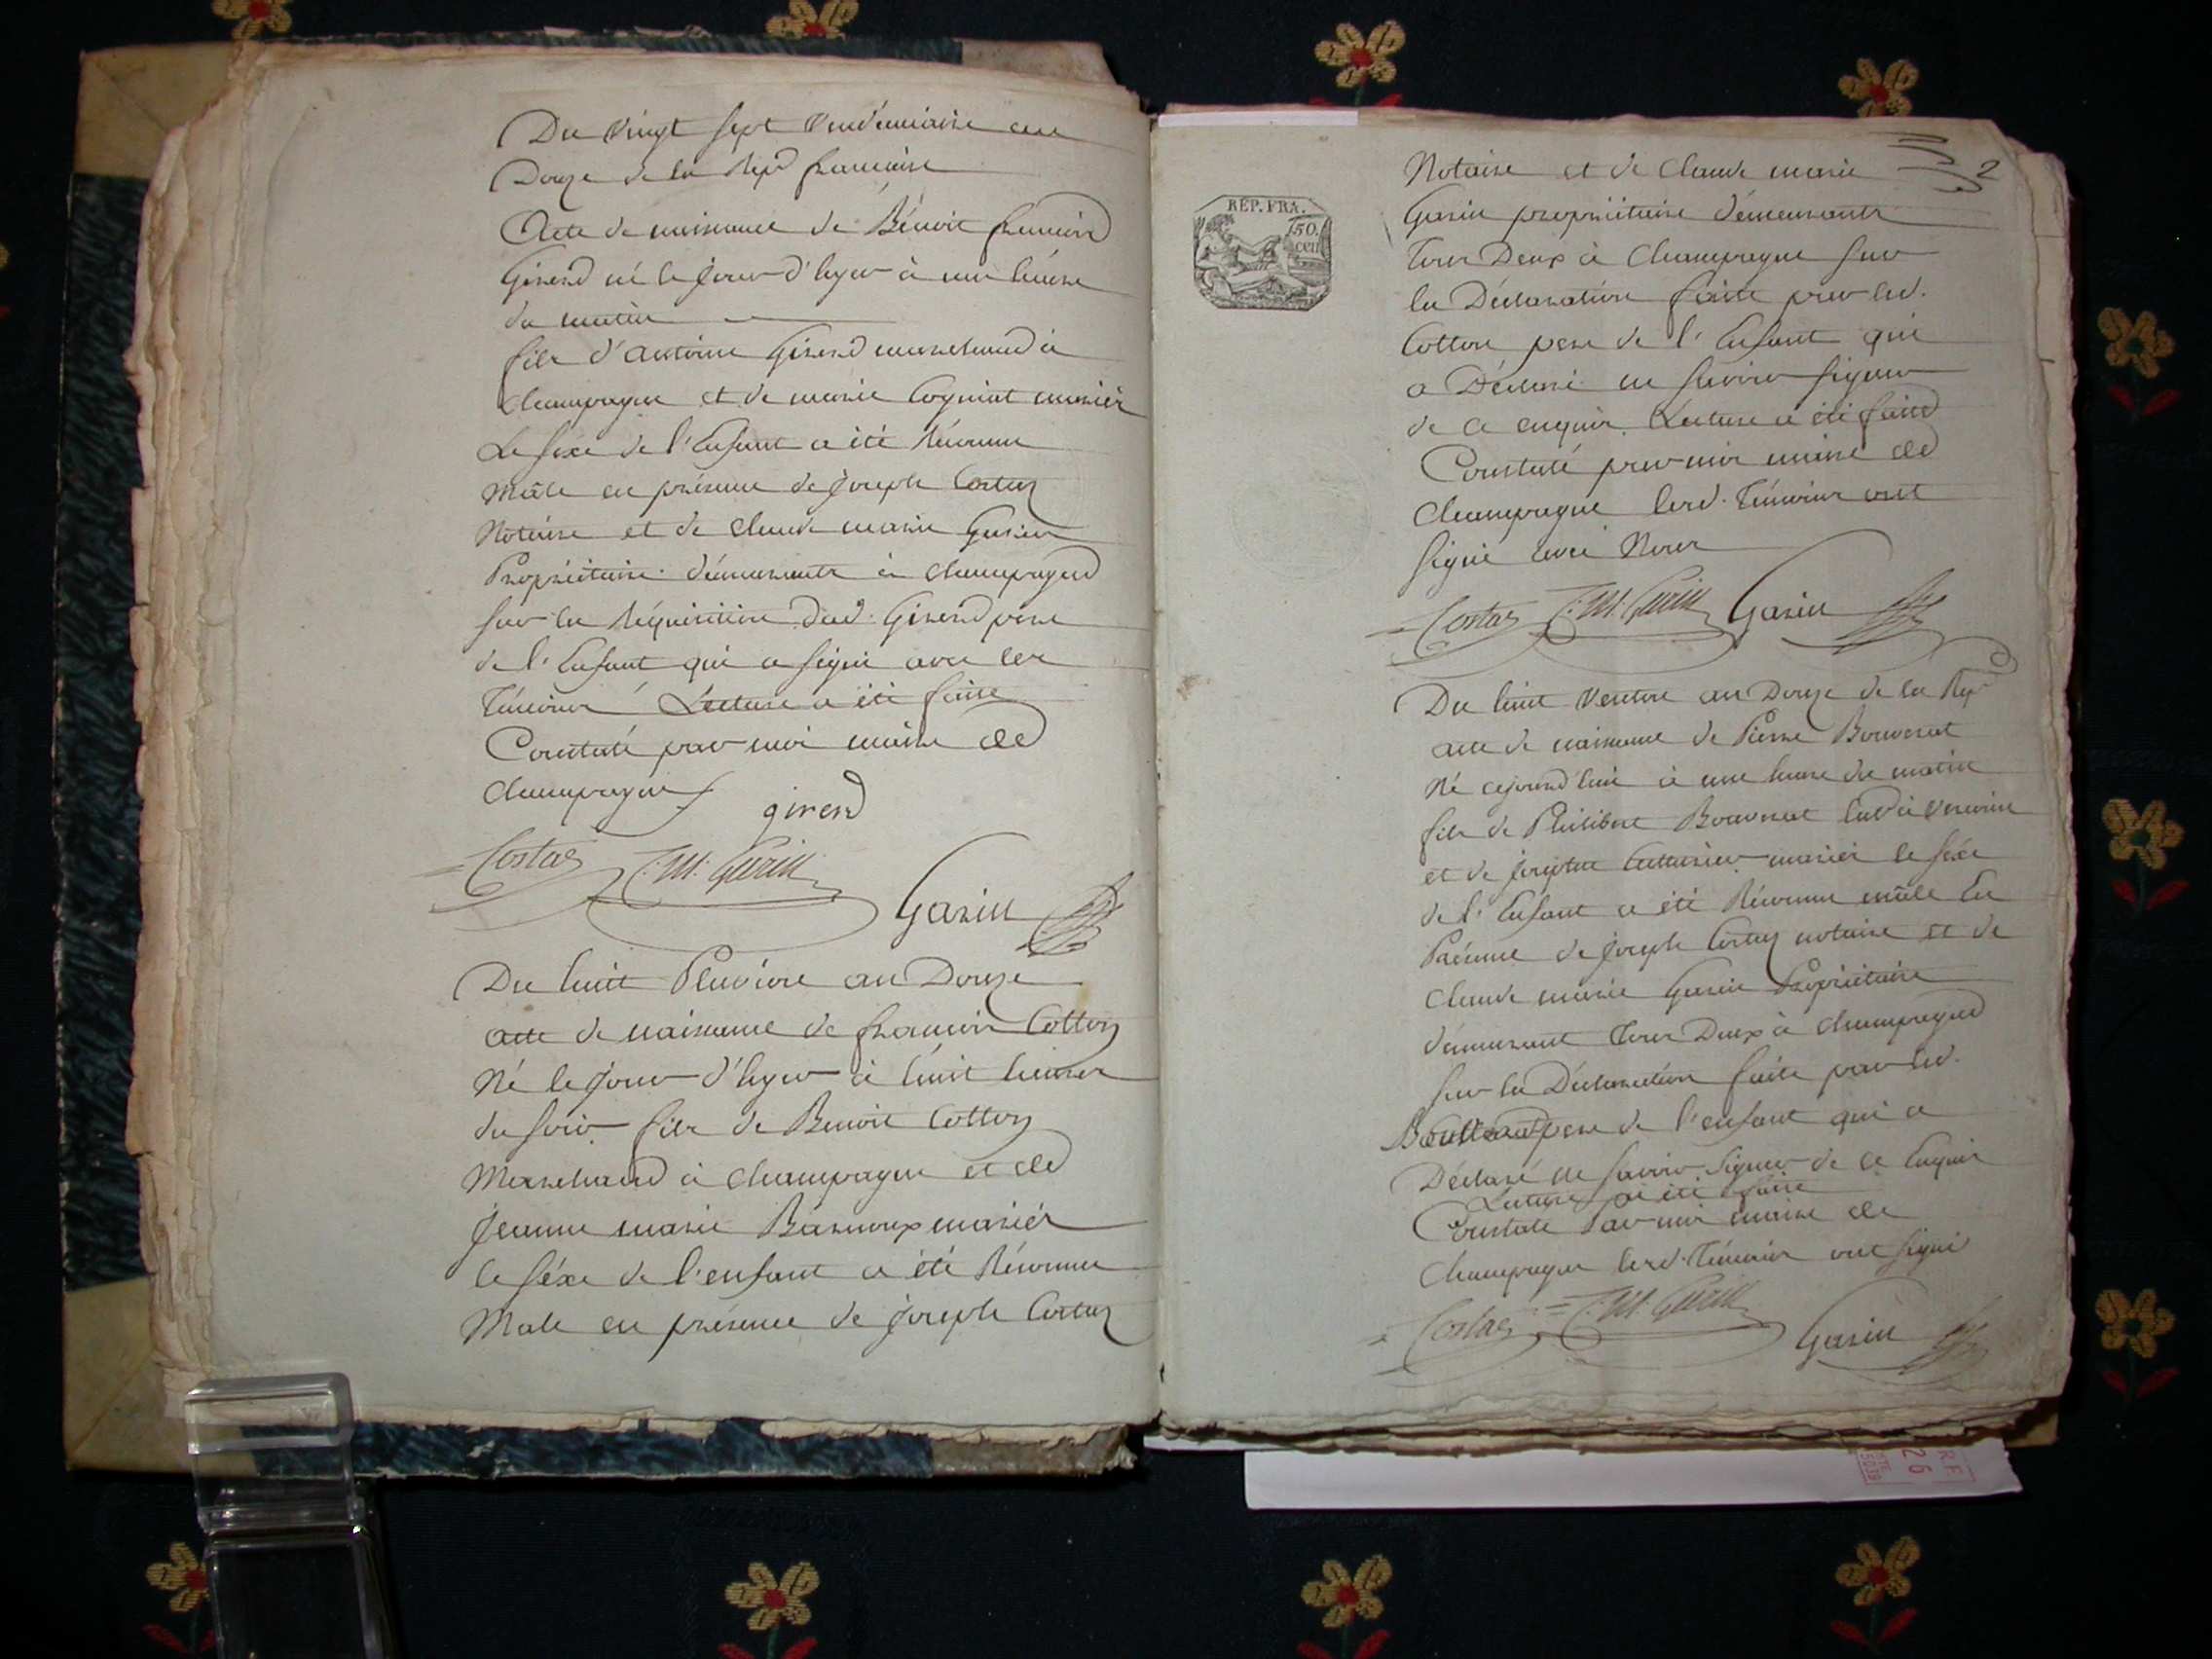 Du vingt sept Vendémiaire an
Douze de la Rep. francaise
Acte de naissance de Bénoit francois
Girerd né le jour d'hyer à une heure
du matin
fils d'antoine Girerd marchand à
champagne et de marie Cogniat mariés
Le séxe de l'Enfant a été Réconnu
mâle en présence de joseph Costaz
Notaire et de claude marie Gusin
Propriétaire démeurants à champagne
sur la Réquisition dud. Girerd pere
de l'Enfant qui a signé avec les
Témoins Lécture a été faite
Constaté par moi maire de
champagne
girerd
Costaz C. M. Garin
Garin
Du huit Pluviose an Douze
acte de naissance de francois Cotton
Né le jour d'hyer à huit heures
du soir fils de Benoit Cotton
Marchand à champagne et de
jeanne marie mariés
le séxe de l'enfant a été Réconnu
Male en présence de joseph Costaz
2
Notaire et de claude marie
Garin propriétaire démeurants
Tous Deux à champagne sur
la Déclaration faite par led.
Cotton pere de l'Enfant qui
a Déclaré ne savoir signer
de ce enquis Lecture a été faite
Constaté par moi maire de
champagne lesd. Témoins ont
signé avec Nous
REP. FRA.
50.
cen
Costaz C. M. Garin Garin
Du huit Ventose an Douze de la Rep.
acte de naissance de Pierre Bouverat
Né cejourd'hui à une heure du matin
fils de Philibert Bouverat
et de josephte mariés le séxe
de l'Enfant a été Réconnu mâle En
Présence de joseph Costaz notaire et de
claude marie Garin Propriétaire
démeurant Tous Deux à champagne
sur la Déclaration faite par led.
pere de l'enfant qui a
Déclaré ne savoir signer de ce Enquis
Lecture a été faite
Constaté Par moi maire de
champagne lesd. Témoins ont signé
Costaz C. M. Garin
Garin
R.F.
26